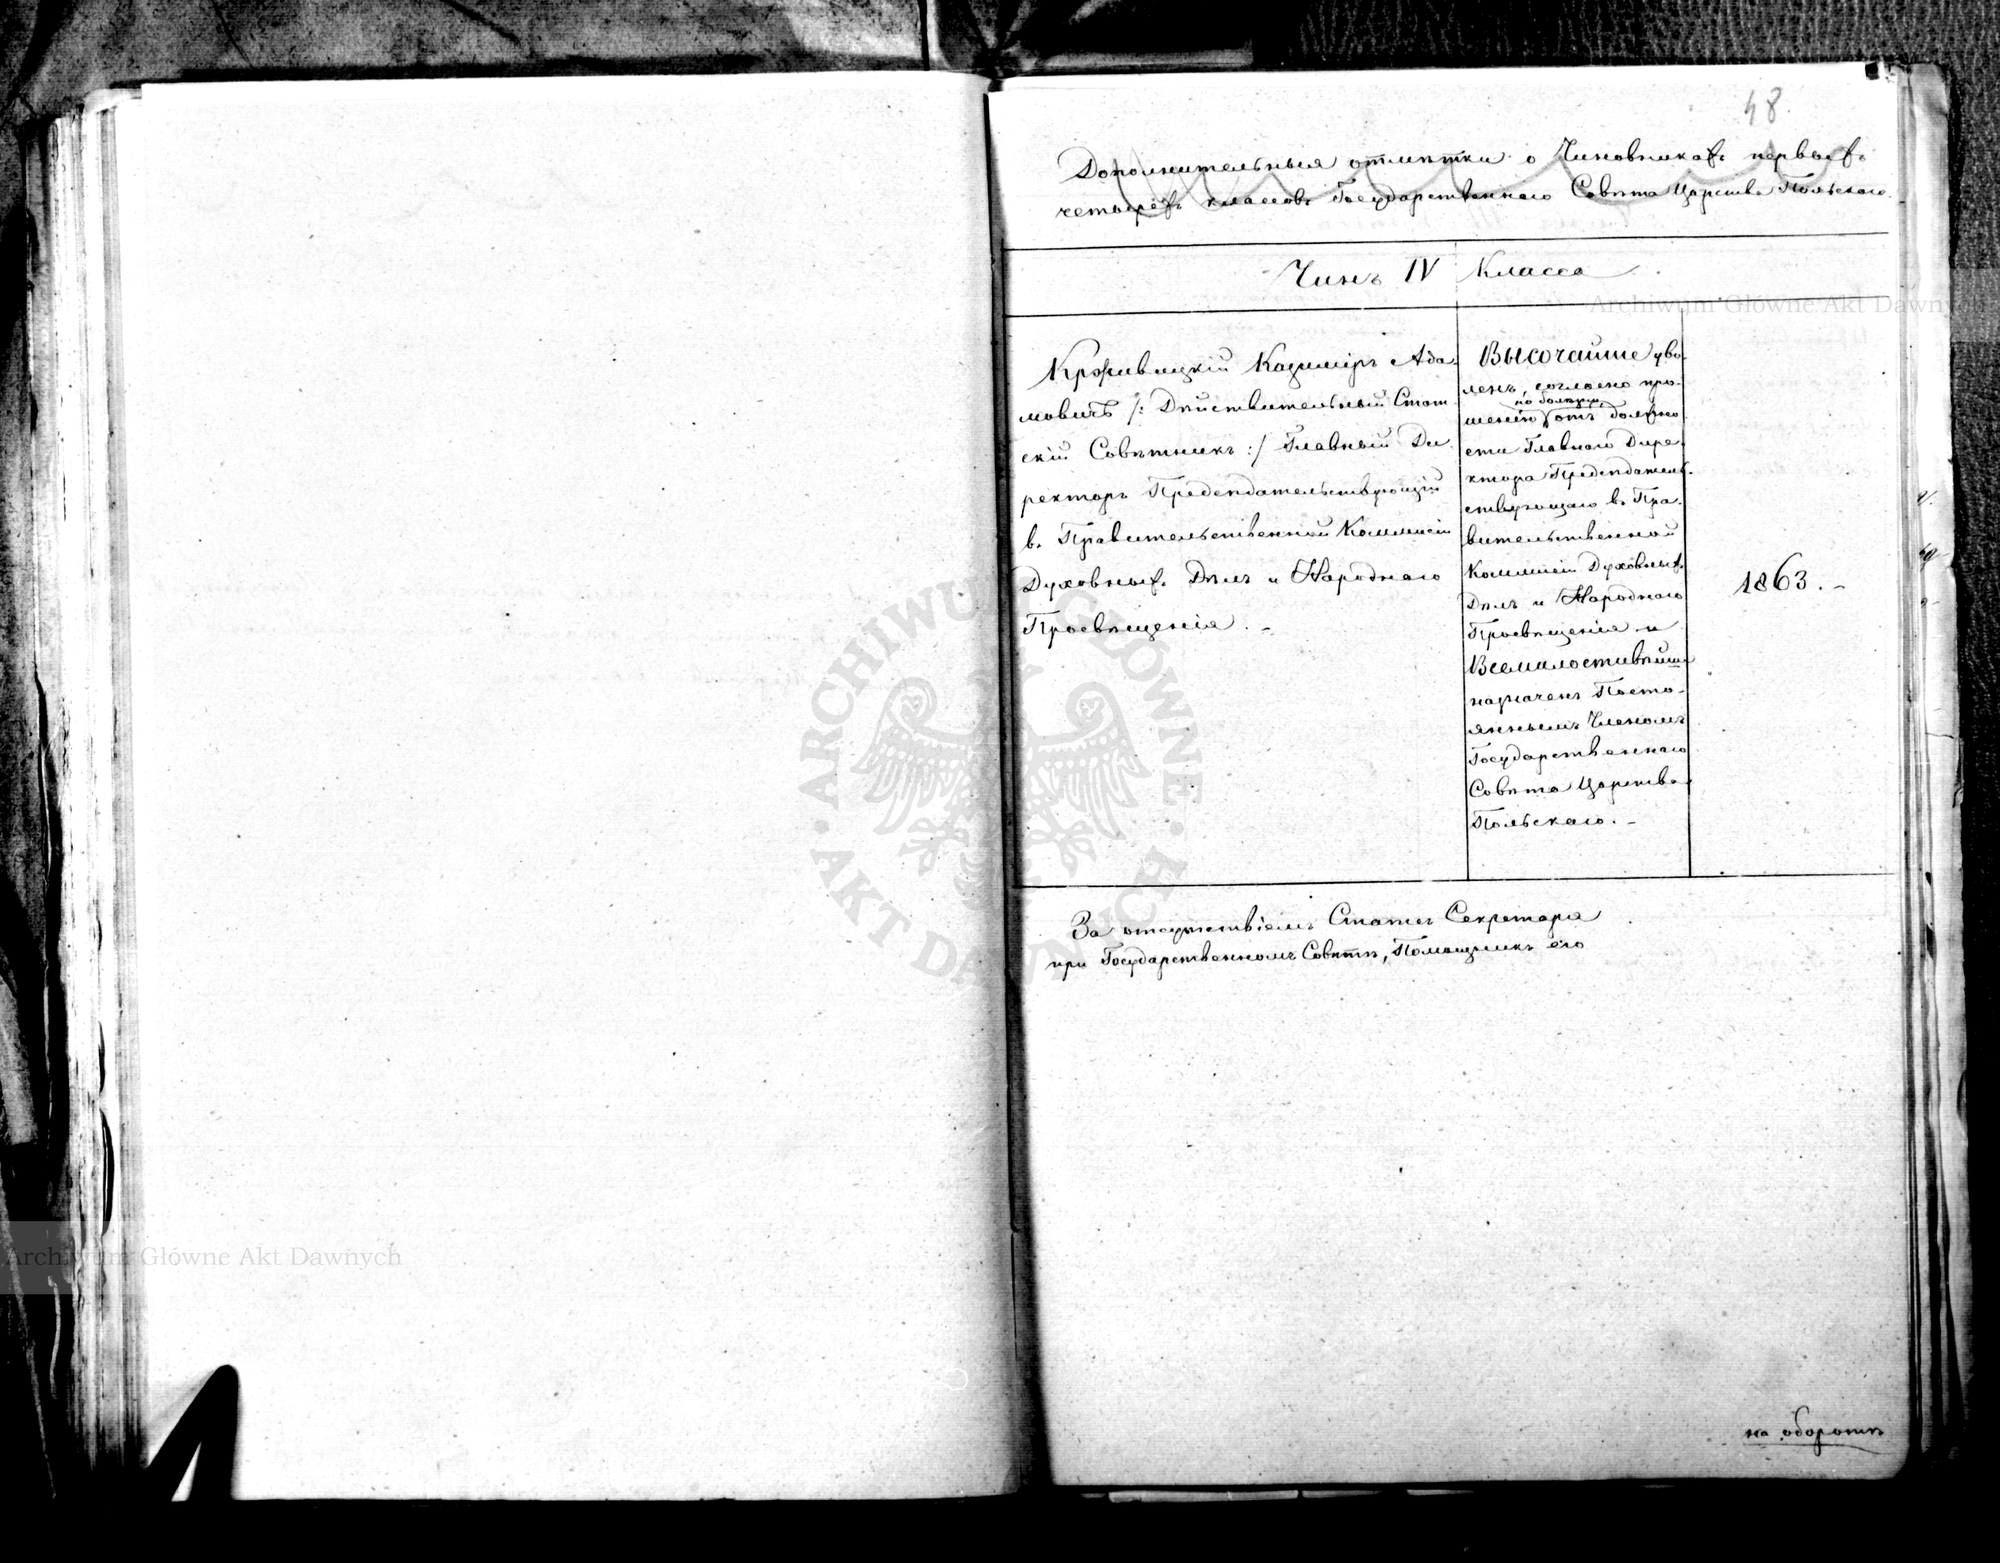 48.
Дополнительныя отмѣтки о Чиновникахъ первыхъ
четырёхъ классовъ Государственнаго Совѣта Царства Польскаго
Чинъ IV Класса
Кржывицкій Казиміръ Ада-
мовичъ /: Дѣйствительный Стат-
скій Совѣтникъ :/ Главный Ди-
ректоръ Предсѣдательствующій
въ Правительственной Коммисіи
Духовныхъ Дѣлъ и Народнаго
Просвѣщенія. –
Высочайше уво-
ленъ, согласно про-
по болѣзни,
шенію отъ должно
сти Главнаго Дире-
ктора Предсѣдатель-
ствующаго въ Пра-
вительственной
Коммисіи Духовныхъ
Дѣлъ и Народнаго
Просвѣщенія и
Всемилостивѣйше
назначенъ Посто-
яннымъ Членомъ
Государственнаго
Совѣта Царства
Польскаго. –
1863. –
За отсутствіемъ Статсъ Секретаря
при Государственномъ Совѣтѣ, Помощникъ его
на оборотѣ
Archiwum Główne Akt Dawnych
ARCHIWUM GŁÓWNE AKT DAWNYCH
Archiwum Główne Akt Dawnych